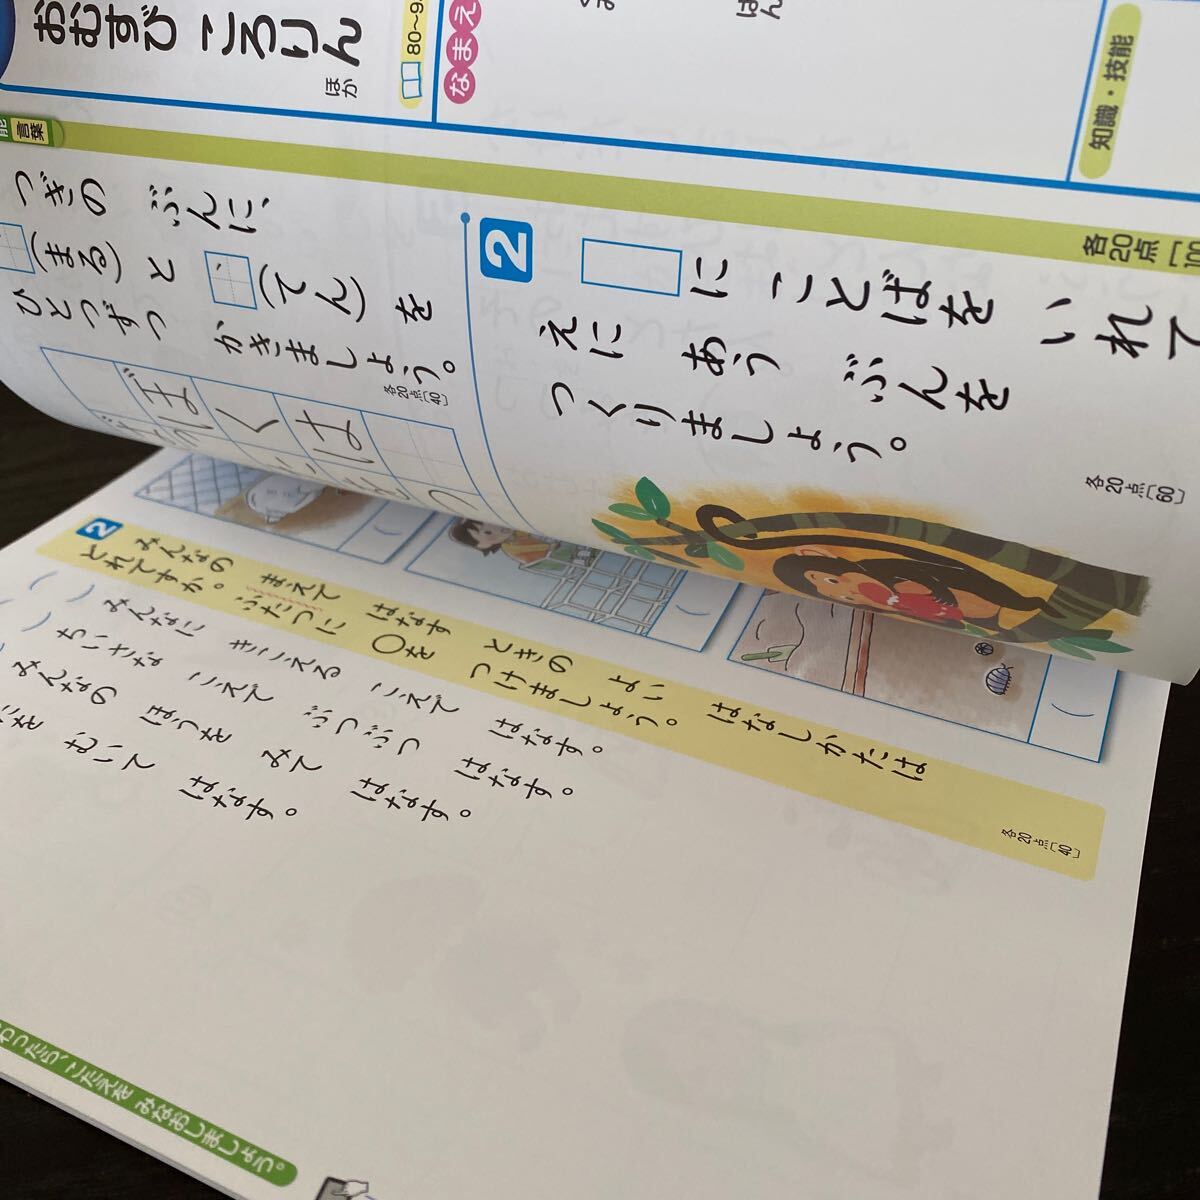 おむすび ころりん
ほか
80〜9
なまえ
くみ
ばん
知識・技能
能 言葉
各20点
つぎの ぶんに、
(まる)と (てん)を
ひとつずつ かきましょう。
各20点[40]
ぼ
く
は
を
つ
2
に ことばを いれて
えに あう ぶんを
つくりましょう。
各20点[60]
2
みんなの まえで はなす ときの よい はなしかたは
どれですか。ふたつに ○を つけましょう。
各20点[40]
みんなに きこえる こえで はなす。
ちいさな こえで ぶつぶつ はなす。
みんなの ほうを みて はなす。
を むいて はなす。
わったら、こたえを みなおしましょう。